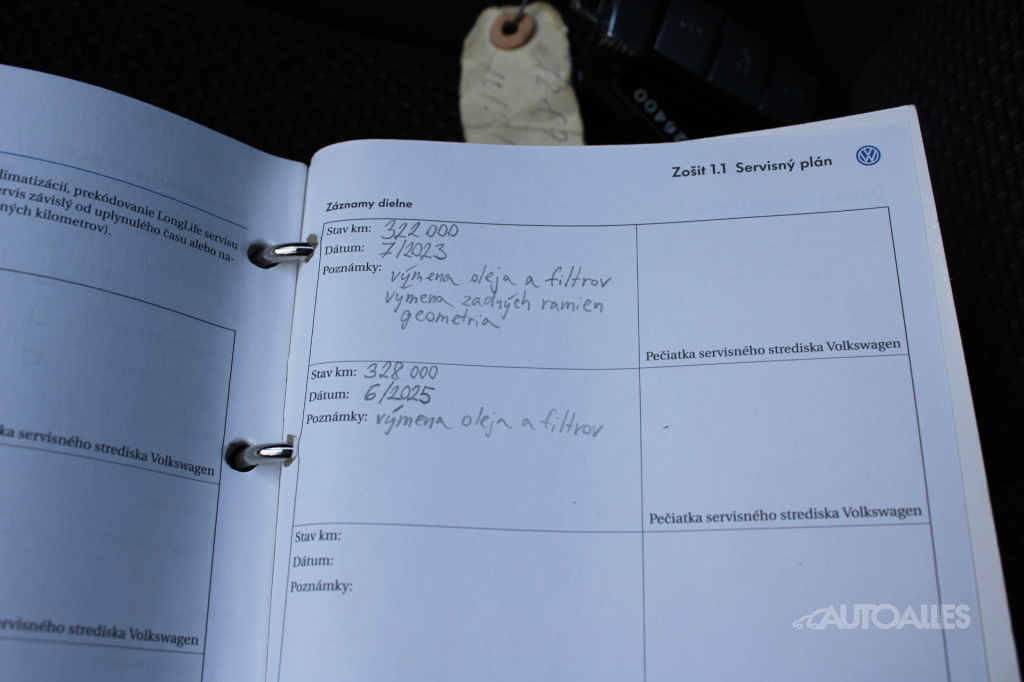 limatizácií, prekódovanie LongLife servisu
ervis závislý od uplynulého času alebo na-
ných kilometrov).
ka servisného strediska Volkswagen
ervisného strediska Volkswagen
26400
Zošit 1.1 Servisný plán
Záznamy dielne
Stav km: 322 000
Dátum: 7/2023
Poznámky: výmena oleja a filtrov
vymena zadných ramien
geometria
Pečiatka servisného strediska Volkswagen
Stav km: 328 000
Dátum: 6/2025
Poznámky: výmena oleja a filtrov
Pečiatka servisného strediska Volkswagen
Stav km:
Dátum:
Poznámky:
AUTOALLES